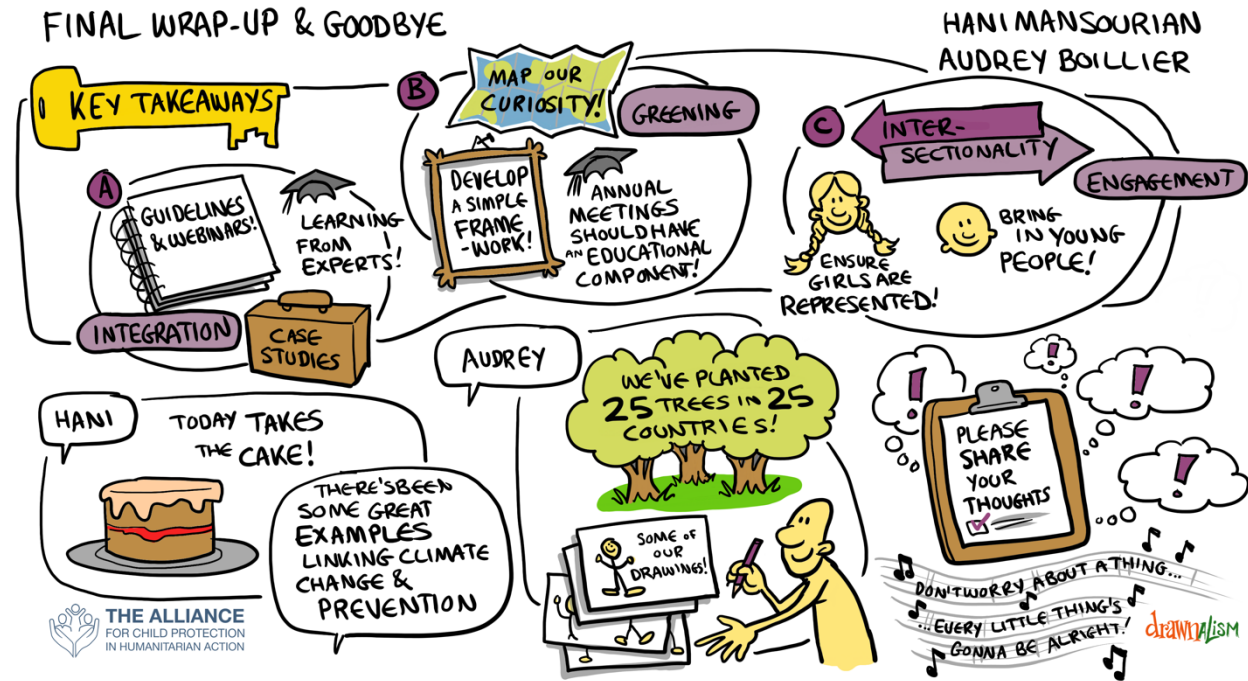 FINAL WRAP-UP & GOODBYE
HANI MANSOURIAN
AUDREY BOILLIER
KEY TAKEAWAYS
A
GUIDELINES
& WEBINARS!
LEARNING
FROM
EXPERTS!
INTEGRATION
CASE
STUDIES
B
MAP OUR
CURIOSITY!
GREENING
DEVELOP
A SIMPLE
FRAME
-WORK!
ANNUAL
MEETINGS
SHOULD HAVE
AN EDUCATIONAL
COMPONENT!
C
INTER-
SECTIONALITY
ENGAGEMENT
ENSURE
GIRLS ARE
REPRESENTED!
BRING
IN YOUNG
PEOPLE!
HANI
TODAY TAKES
THE CAKE!
THERE'S BEEN
SOME GREAT
EXAMPLES
LINKING CLIMATE
CHANGE &
PREVENTION
AUDREY
WE'VE PLANTED
25 TREES IN 25
COUNTRIES!
SOME OF
OUR
DRAWINGS!
!
!
!
!
PLEASE
SHARE
YOUR
THOUGHTS
DON'T WORRY ABOUT A THING...
...EVERY LITTLE THING'S
GONNA BE ALRIGHT!
THE ALLIANCE
FOR CHILD PROTECTION
IN HUMANITARIAN ACTION
drawnalism